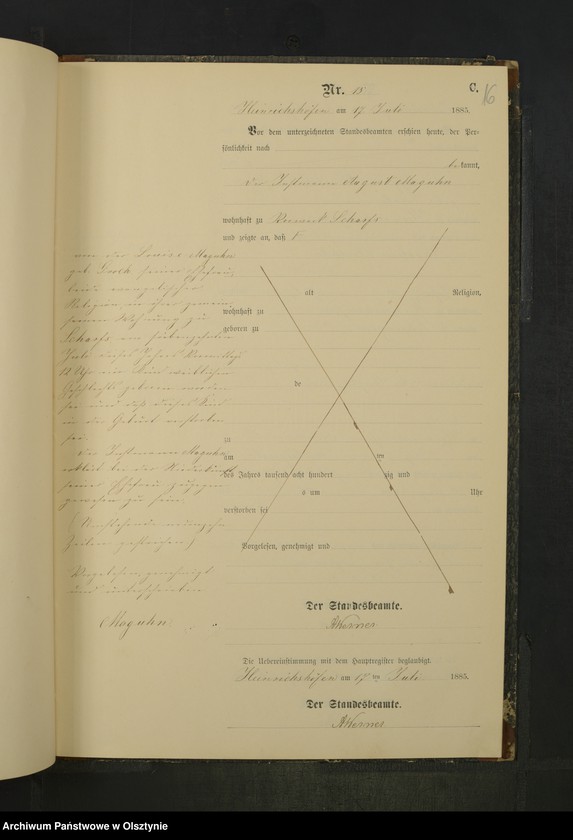 Nr. 15
C.
16
Heinrichshöfen am 17 Juli 1885.
Vor dem unterzeichneten Standesbeamten erschien heute, der Per-
sönlichkeit nach
bekannt,
der Instmann August Maguhn
wohnhaft zu Scharfs
und zeigte an, daß
von der Louise Maguhn
geb. seiner Ehefrau,
beide evangelischer
Religion, in ihrer gemein-
samen Wohnung zu
Scharfs am siebenzehnten
Juli dieses Jahres
Uhr ein Kind weiblichen
Geschlechts geboren worden
sei und daß dieses Kind
in der Geburt verstorben
sei.
Der Instmann Maguhn
erklärt bei der Niederkunft
seiner Ehefrau zugegen
gewesen zu sein.
(Vorstehende
Zeilen gestrichen)
Vorgelesen, genehmigt
und unterschrieben
Maguhn
alt Religion,
wohnhaft zu
geboren zu
de
zu
am ten
des Jahres tausend acht hundert zig und
s um Uhr
verstorben sei
Vorgelesen, genehmigt und
Der Standesbeamte.
AWerner
Die Uebereinstimmung mit dem Hauptregister beglaubigt.
Heinrichshöfen am 17 ten Juli 1885.
Der Standesbeamte.
AWerner
Archiwum Państwowe w Olsztynie